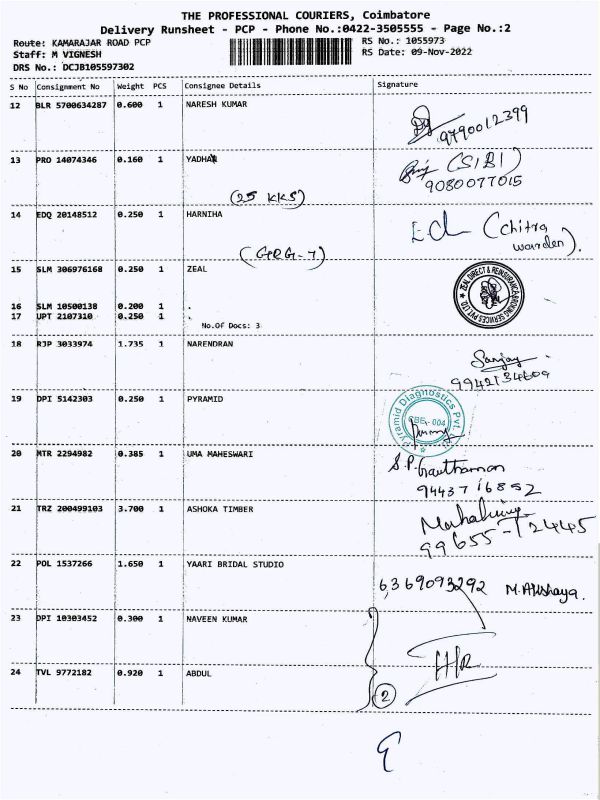 THE PROFESSIONAL COURIERS, Coimbatore
Delivery Runsheet - PCP - Phone No.:0422-3505555 - Page No.:2
Route: KAMARAJAR ROAD PCP
RS No.: 1055973
Staff: M VIGNESH
RS Date: 09-Nov-2022
DRS No.: DCJB105597302
S No Consignment No Weight PCS Consignee Details Signature
12 BLR 5700634287 0.600 1 NARESH KUMAR
9790012399
13 PRO 14074346 0.160 1 YADHAV
(SIBI)
9080077015
(25 KKS)
14 EDQ 20148512 0.250 1 HARNIHA
(Chitra
warden).
(GRG-7)
15 SLM 306976168 0.250 1 ZEAL
ZEAL DIRECT & REINSURANCE BROKING SERVICES PVT LTD
16 SLM 10500138 0.200 1 .
17 UPT 2107310 0.250 1 .
No.Of Docs: 3
18 RJP 3033974 1.735 1 NARENDRAN
Sanjay
19 DPI 5142303 0.250 1 PYRAMID
Pyramid Diagnostics Pvt.
CBE-004
20 MTR 2294982 0.385 1 UMA MAHESWARI
S.P. Gauthaman
9443716852
21 TRZ 200499103 3.700 1 ASHOKA TIMBER
99655-12445
22 POL 1537266 1.650 1 YAARI BRIDAL STUDIO
6369093292 M.Akshaya.
23 DPI 10303452 0.300 1 NAVEEN KUMAR
24 TVL 9772182 0.920 1 ABDUL
2